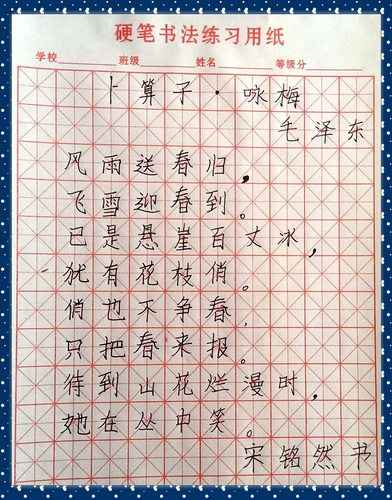 硬笔书法练习用纸
学校 班级 姓名 等级分
卜算子·咏梅
毛泽东
风雨送春归，
飞雪迎春到。
已是悬崖百丈冰，
犹有花枝俏。
俏也不争春，
只把春来报。
待到山花烂漫时，
她在丛中笑。
宋铭然书